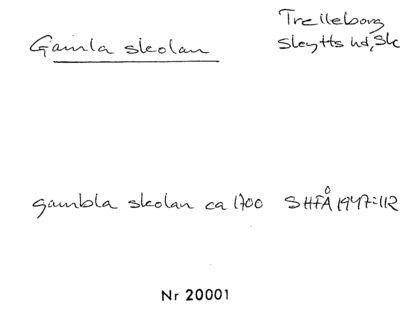 Trelleborg
Gamla skolan Skytts hd, Sk
gambla skolan ca 1700 SHFÅ 1947:112
Nr 20001